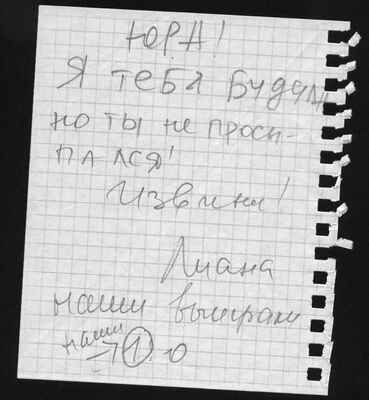 ЮРА!
Я ТЕБЯ БУДИЛА
НО ТЫ НЕ ПРОСЫ-
ПАЛСЯ!
Извини!
Лиана
наши выиграли
наши
→ 1-0